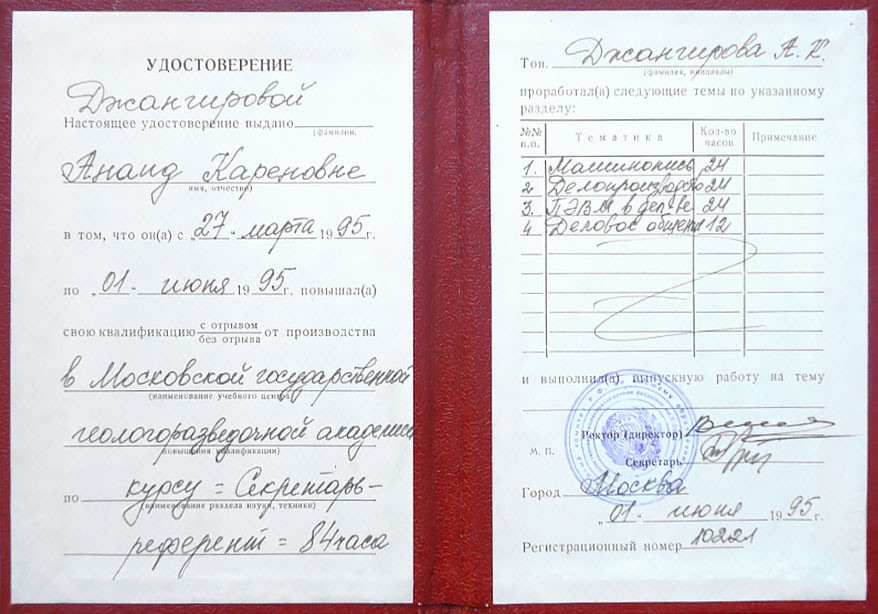 УДОСТОВЕРЕНИЕ
Джангировой
Настоящее удостоверение выдано
(фамилия,
Анаид Кареновне
имя, отчество)
в том, что он(а) с „27" марта 1995г.
по „01" июня 1995г. повышал(а)
свою квалификацию с отрывом от производства
без отрыва
в Московской государственной
(наименование учебного центра
геологоразведочной академии
повышения квалификации)
по курсу = Секретарь-
(наименование раздела науки, техники)
референт = 84 часа
Тов. Джангирова А. К.
(фамилия, инициалы)
проработал(а) следующие темы по указанному
разделу:
№№ п.п. Тематика Кол-во часов Примечание
1. Машинопись 24
2 Делопроизводство 24
3. ПЭВМ в дел-ве 24
4 Деловое общение 12
и выполнил(а) выпускную работу на тему
Ректор (директор)
М. П.
Секретарь
Город Москва
„01" июня 1995г.
Регистрационный номер 10221